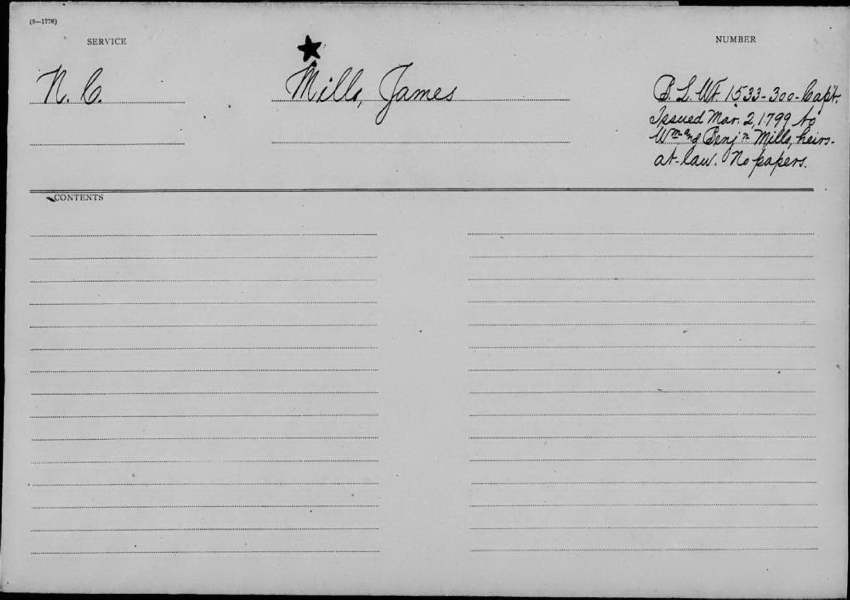 (3—1778)
SERVICE
NUMBER
N. C.
Mills, James
B. L. Wt. 1533-300-Capt.
Issued Mar. 2, 1799 to
Wm. and Benjn. Mills, heirs-
at-law. No papers.
CONTENTS